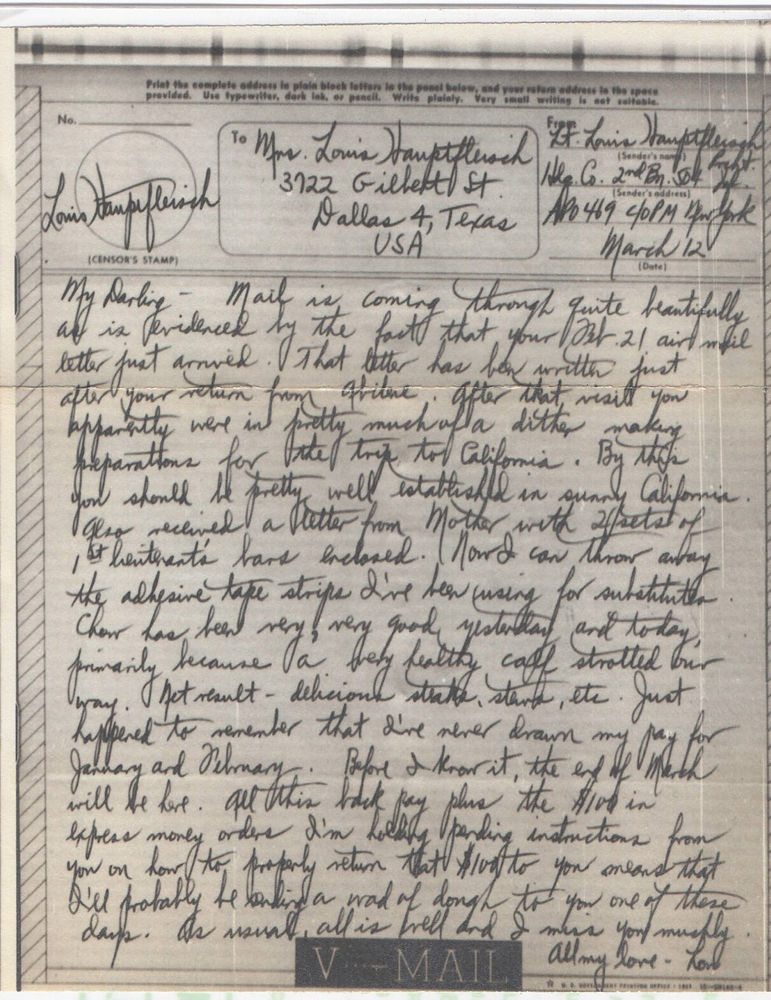 Print the complete address in plain block letters in the panel below, and your return address in the space
provided. Use typewriter, dark ink, or pencil. Write plainly. Very small writing is not suitable.
No.
Louis Hauptfleisch
(CENSOR'S STAMP)
To Mrs. Louis Hauptfleisch
3722 Gilbert St.
Dallas 4, Texas
USA
From
Lt. Louis Hauptfleisch
(Sender's name)
Hdq. Co. 2nd Bn. 504 Prcht. Inf.
(Sender's address)
APO 469 c/o PM New York
March 12
(Date)
My Darling - Mail is coming through quite beautifully
as is evidenced by the fact that your Feb. 21 air mail
letter just arrived. That letter has been written just
after your return from Abilene. After that visit you
apparently were in pretty much of a dither making
preparations for the trip to California. By this
you should be pretty well established in sunny California.
Also received a letter from Mother with 2 sets of
1st lieutenant's bars enclosed. Now I can throw away
the adhesive tape strips I've been using for substitutes.
Chow has been very, very good, yesterday and today,
primarily because a very healthy calf strolled our
way. Net result - delicious steaks, stews, etc. Just
happened to remember that I've never drawn my pay for
January and February. Before I know it, the end of March
will be here. All this back pay plus the $100 in
express money orders I'm holding pending instructions from
you on how to properly return that $100 to you means that
I'll probably be sending a wad of dough to you one of these
days. As usual, all is well and I miss you mushly.
All my love - Lou
V - MAIL